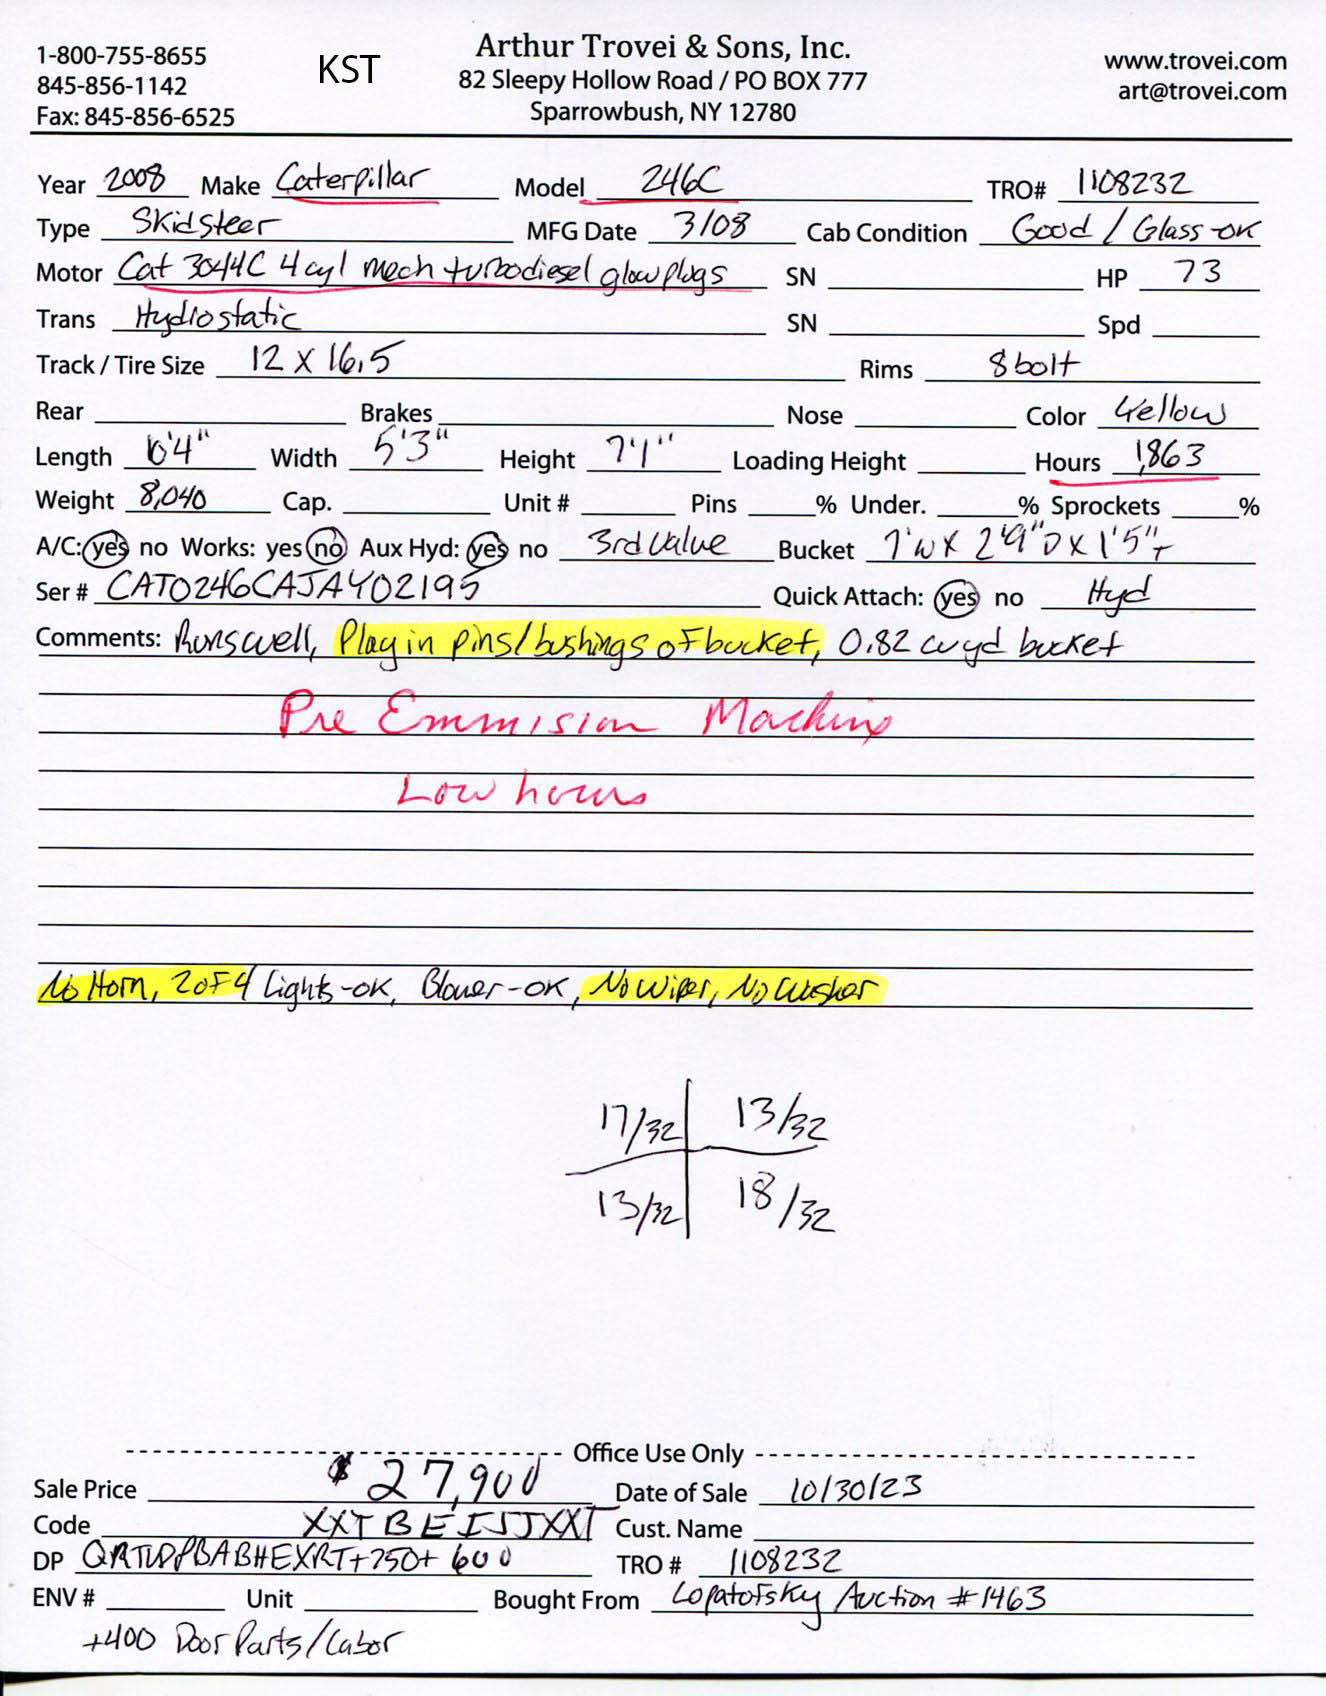 1-800-755-8655
845-856-1142
Fax: 845-856-6525
KST
Arthur Trovei & Sons, Inc.
82 Sleepy Hollow Road / PO BOX 777
Sparrowbush, NY 12780
www.trovei.com
art@trovei.com
Year 2008 Make Caterpillar Model 246C TRO# 1108232
Type Skidsteer MFG Date 3/08 Cab Condition Good / Glass-ok
Motor Cat 3044C 4cyl mech turbodiesel glowplugs SN HP 73
Trans Hydrostatic SN Spd
Track / Tire Size 12 X 16.5 Rims 8 bolt
Rear Brakes Nose Color Yellow
Length 6'4" Width 5'3" Height 7'1" Loading Height Hours 1,863
Weight 8,040 Cap. Unit # Pins % Under. % Sprockets %
A/C: yes no Works: yes no Aux Hyd: yes no 3rd Valve Bucket 7'W X 2'9"D X 1'5"T
Ser # CAT0246CAJAY02195 Quick Attach: yes no Hyd
Comments: Runs well, Play in pins/bushings of bucket, 0.82 cu yd bucket
Pre Emmision Machine
Low hours
No Horn, 2 of 4 Lights-ok, Blower-ok, No Wiper, No Washer
17/32 13/32
13/32 18/32
Office Use Only
Sale Price $27,900 Date of Sale 10/30/23
Code XXTBEISJJXXT Cust. Name
DP +750+ 600 TRO # 1108232
ENV # Unit Bought From Lopatofsky Auction #1463
+400 Door Parts/Labor